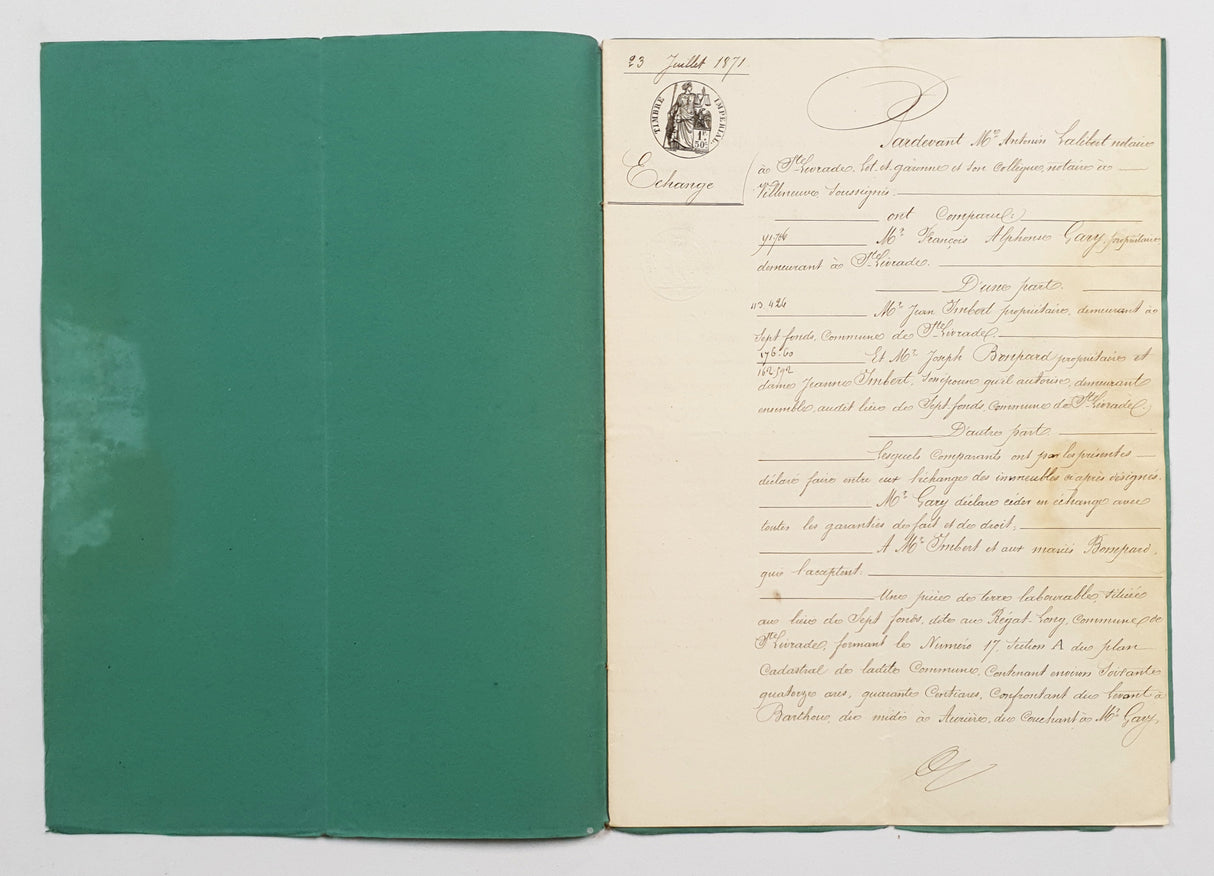 23 Juillet 1871
TIMBRE IMPERIAL
1F
50C
Echange
Pardevant Me Antonin Lalibert notaire
à Ste Livrade, Lot-et-garonne et son Collègue, notaire à
Villeneuve, Soussignés.
ont Comparu:
Mr François Alphonse Gary, propriétaire
demeurant à Ste Livrade.
D'une part.
43.426
Mr Jean Imbert propriétaire, demeurant à
Sept fonds, Commune de Ste Livrade.
176.60
Et Mr Joseph Bompard propriétaire et
162.592
dame Jeanne Imbert, son épouse qu'il autorise, demeurant
ensemble, audit lieu de Sept-fonds, Commune de Ste Livrade.
D'autre part.
Lesquels Comparants ont par les présentes
déclaré faire entre eux l'échange des immeubles ci après désignés.
Mr Gary déclare céder en échange avec
toutes les garanties de fait et de droit,
A Mr Imbert et aux mariés Bompard,
qui l'acceptent.
Une pièce de terre labourable, située
au lieu de Sept fonds, dite au Régat-Long, Commune de
Ste Livrade, formant le Numéro 17, Section A du plan
Cadastral de ladite Commune, Contenant environ Soixante
quatorze ares, quarante Centiares, Confrontant du levant à
Barthou, du midi à Aurière, du Couchant à Mr Gary,